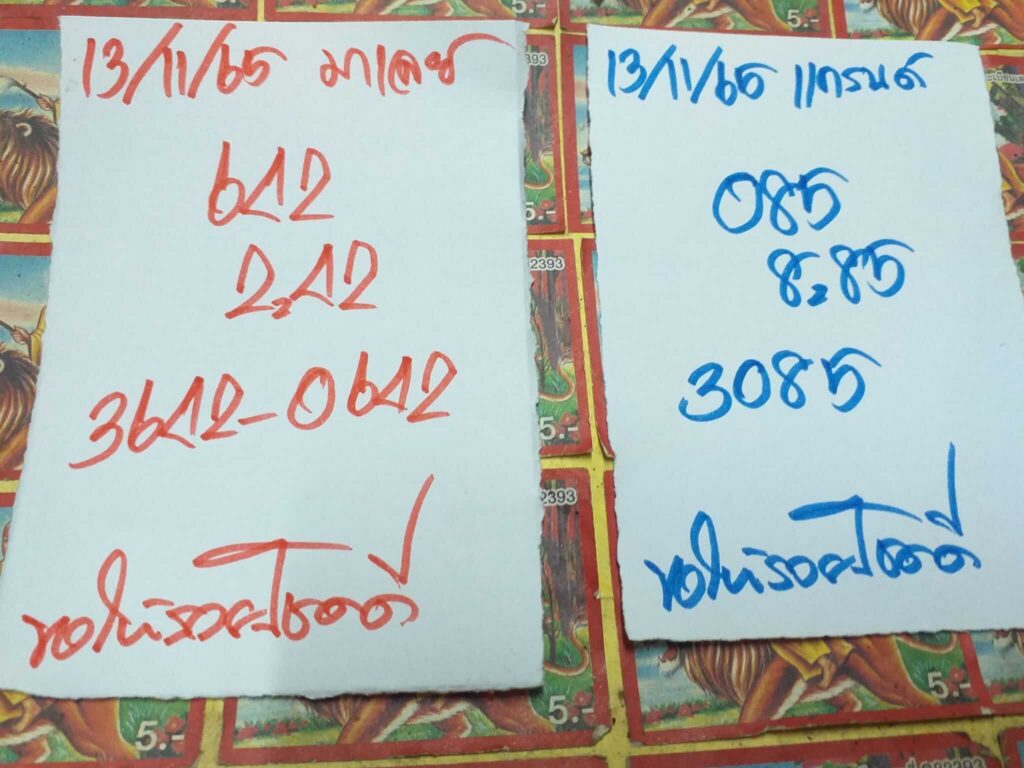 13/11/65 มาเลย์
642
2,42
3642-0642
ขอให้รวยโชคดี
13/11/65 แกรนด์
085
8,85
3085
ขอให้รวยโชคดี
5.-
5.-
2393
5.-
2393
5.-
2393
5.-
5.-
5.-